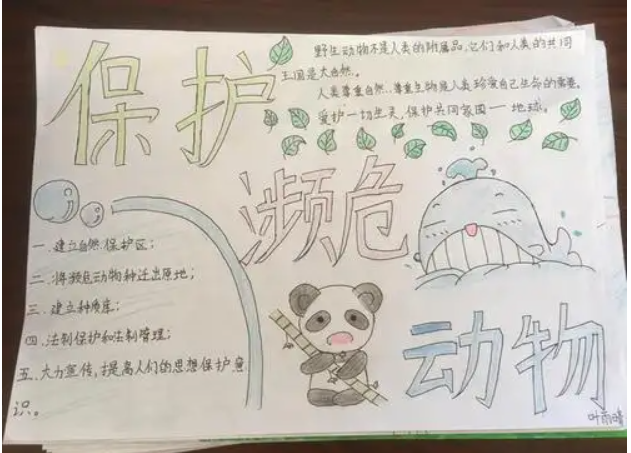 保护
野生动物不是人类的附属品,它们和人类的共同
王国是大自然。
人类尊重自然、尊重生物是人类珍爱自己生命的需要。
爱护一切生灵,保护共同家园一地球。
濒危
一.建立自然保护区;
二.将濒危动物种迁出原地;
三.建立种质库;
四.法制保护和法制管理;
五.大力宣传,提高人们的思想保护意
识。
动物